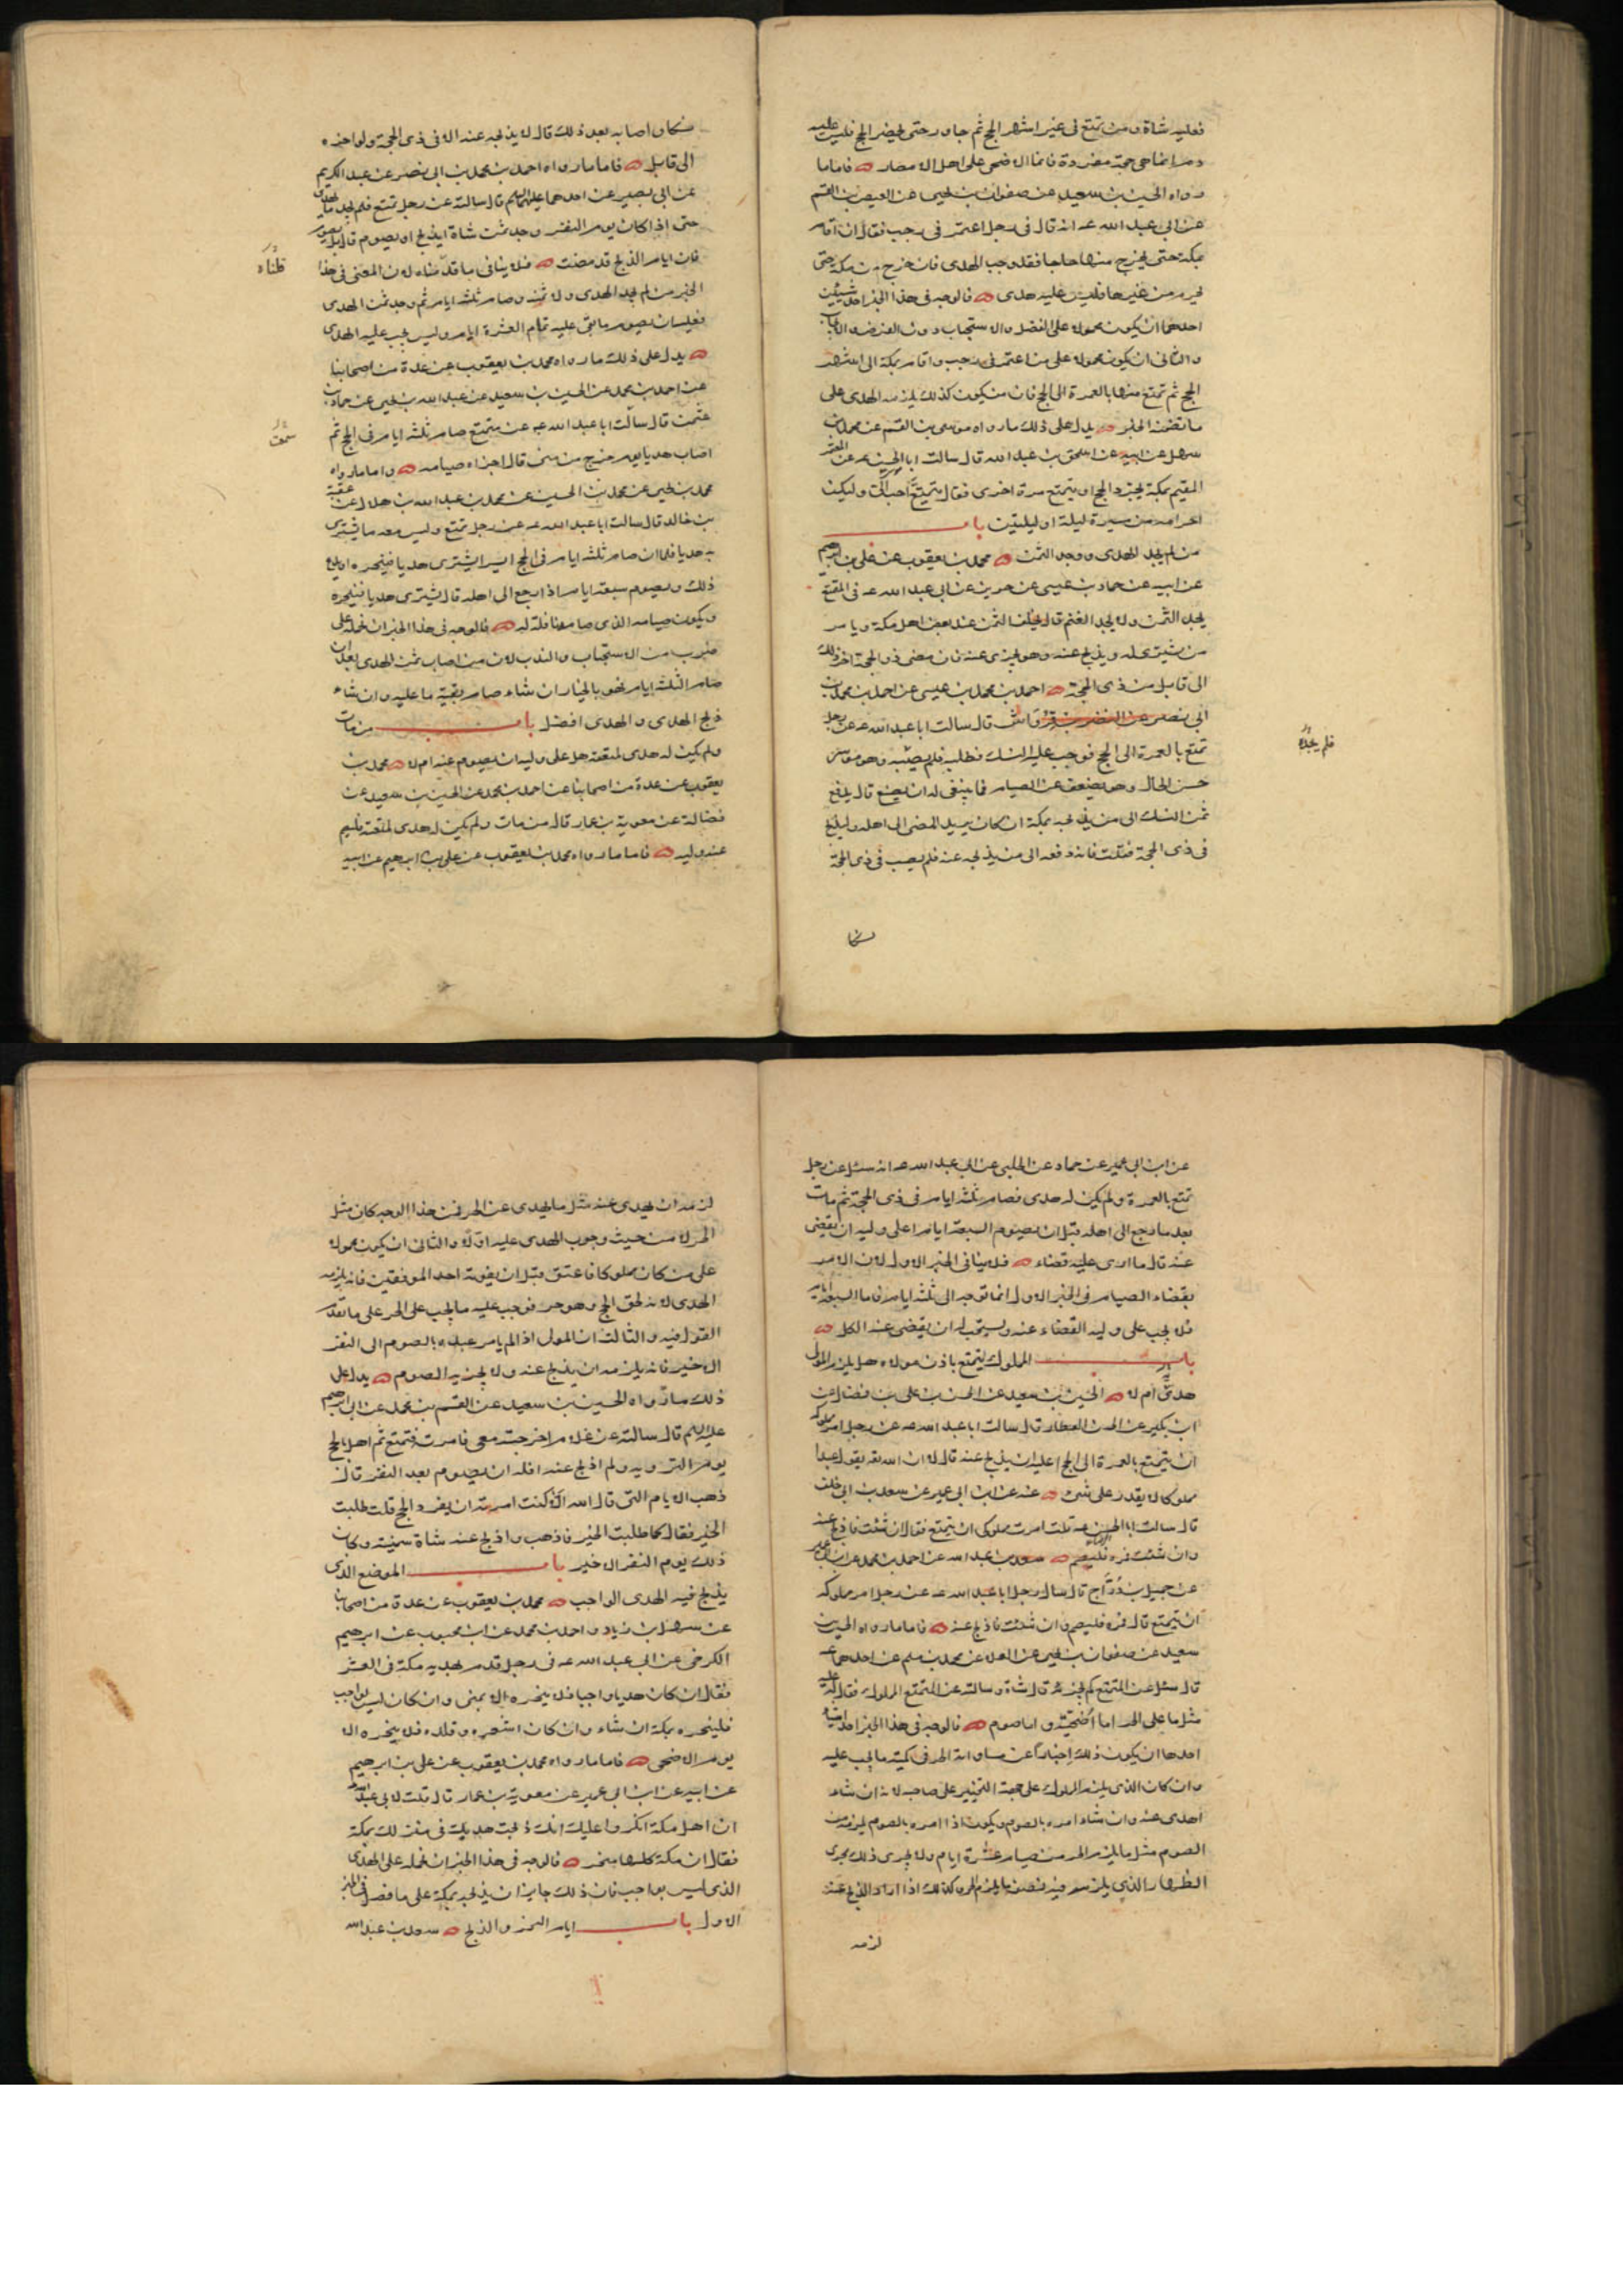 فعليه شاة ومن تمتع فى غير اشهر الحج ثم جاور حتى يحضر الحج فليس عليه
دم انما هى حجة مفردة فانما الاضحى على اهل الامصار فاما ما
رواه الحسين بن سعيد عن صفوان بن يحيى عن العيص بن القسم
عن ابى عبد الله عه انه قال فى رجل اعتمر فى رجب فقال ان اقام
بمكة حتى يخرج منها حاجا فقد وجب الهدى فان خرج من مكة حتى
يحرم من غيرها فليس عليه هدى فالوجه فى هذا الخبر احد شيئين
احدهما ان يكون محمولا على الفضل والاستحباب دون الفرض والايجاب
والثانى ان يكون محمولا على من اعتمر فى رجب واقام بمكة الى اشهر
الحج ثم تمتع منها بالعمرة الى الحج فان من يكون كذلك يلزمه الهدى على
ما تضمنه الخبر يدل على ذلك ما رواه موسى بن القسم عن محمد بن
سهل عن ابيه عن اسحق بن عبد الله قال سالت ابا الحسن عه عن المعتمر
المقيم بمكة يجرد الحج او يتمتع مرة اخرى فقال يتمتع احب الى وليكن
احرامه من مسيرة ليلة او ليلتين باب
من لم يجد الهدى ووجد الثمن محمد بن يعقوب عن على بن ابرهيم
عن ابيه عن حماد بن عيسى عن حريز عن ابى عبد الله عه فى المتمتع
يجد الثمن ولا يجد الغنم قال يخلف الثمن عند بعض اهل مكة ويامر
من يشترى له ويذبح عنه وهو يجزى عنه فان مضى ذو الحجة اخر ذلك
الى قابل من ذى الحجة احمد بن محمد بن عيسى عن احمد بن محمد بن
ابى نصر عن النضر بن قرواش قال سالت ابا عبد الله عه عن رجل
تمتع بالعمرة الى الحج فوجب عليه النسك فطلبه فلم يصبه وهو موسر
حسن الحال وهو يضعف عن الصيام فما ينبغى له ان يصنع قال يدفع
ثمن النسك الى من يذبحه بمكة ان كان يريد المضى الى اهله وليذبح
فى ذى الحجة فقلت فانه دفعه الى من يذبحه عنه فلم يصب فى ذى الحجة
فلم يجده
نسكا
نسكا واصابه بعد ذلك قال لا يذبحه عنه الا فى ذى الحجة ولو اخره
الى قابل فاما ما رواه احمد بن محمد بن ابى نصر عن عبد الكريم
عن ابى بصير عن احدهما عليهما السلم قال سالته عن رجل تمتع فلم يجد ما يهدى
حتى اذا كان يوم النفر وجد ثمن شاة ايذبح او يصوم قال بل يصوم
فان ايام الذبح قد مضت فلا ينافى ما قدمناه لان المعنى فى هذا
الخبر من لم يجد الهدى ولا ثمنه وصام ثلثة ايام ثم وجد ثمن الهدى
فعليه ان يصوم ما بقى عليه تمام العشرة ايام وليس يجب عليه الهدى
يدل على ذلك ما رواه محمد بن يعقوب عن عدة من اصحابنا
عن احمد بن محمد عن الحسين بن سعيد عن عبد الله بن يحيى عن حماد بن
عثمن قال سالت ابا عبد الله عه عن متمتع صام ثلثة ايام فى الحج ثم
اصاب هديا يوم خرج من منى قال اجزاه صيامه واما ما رواه
محمد بن يحيى عن محمد بن الحسين عن محمد بن عبد الله بن هلال عن عقبة
بن خالد قال سالت ابا عبد الله عه عن رجل تمتع وليس معه ما يشترى
به هديا فلما ان صام ثلثة ايام فى الحج ايسر ايشترى هديا فينحره او يدع
ذلك ويصوم سبعة ايام اذا رجع الى اهله قال يشترى هديا فينحره
ويكون صيامه الذى صامه نافلة له فالوجه فى هذا الخبر ان نحمله على
ضرب من الاستحباب والندب لان من اصاب ثمن الهدى بعد ان
صام الثلثة ايام فهو بالخيار ان شاء صام بقية ما عليه وان شاء
ذبح الهدى والهدى افضل باب من مات
ولم يكن له هدى لمتعته هل على وليه ان يصوم عنه ام لا محمد بن
يعقوب عن عدة من اصحابنا عن احمد بن محمد عن الحسين بن سعيد عن
فضالة عن معوية بن عمار قال من مات ولم يكن له هدى لمتعته فليصم
عنه وليه فاما ما رواه محمد بن يعقوب عن على بن ابرهيم عن ابيه
قلناه
عن ابن ابى عمير عن حماد عن الحلبى عن ابى عبد الله عه انه سئل عن رجل
تمتع بالعمرة ولم يكن له هدى فصام ثلثة ايام فى ذى الحجة ثم مات
بعد ما رجع الى اهله قبل ان يصوم السبعة ايام اعلى وليه ان يقضى
عنه قال ما ارى عليه قضاء فلا ينافى الخبر الاول لان الامر
بقضاء الصيام فى الخبر الاول انما توجه الى ثلثة ايام فاما السبعة ايام
فلا يجب على وليه القضاء عنه ويستحب له ان يقضى عنه الكل
باب المملوك يتمتع باذن مولاه هل يلزم المولى
هدى ام لا الحسين بن سعيد عن الحسن بن على بن فضال عن
ابن بكير عن الحسن العطار قال سالت ابا عبد الله عه عن رجل امر مملوكه
ان يتمتع بالعمرة الى الحج اعليه ان يذبح عنه قال لا ان الله تعه يقول عبدا
مملوكا لا يقدر على شئ عنه عن ابن ابى عمير عن سعد بن ابى خلف
قال سالت ابا الحسن عه قلت امرت مملوكى ان يتمتع فقال ان شئت فاذبح عنه
وان شئت فمره فليصم سعد بن عبد الله عن احمد بن محمد عن ابن ابى عمير
عن جميل بن دراج قال سال رجل ابا عبد الله عه عن رجل امر مملوكه
ان يتمتع قال فمره فليصم وان شئت فاذبح عنه فاما ما رواه الحسين بن
سعيد عن صفوان بن يحيى عن العلا عن محمد بن مسلم عن احدهما عه
قال سئل عن المتمتع كم يجزيه قال شاة وسالته عن المتمتع المملوك فقال عليه
مثل ما على الحر اما اضحية واما صوم فالوجه فى هذا الخبر احد اشياء
احدها ان يكون ذلك اخبارا عن مساواته الحر فى كمية ما يجب عليه
وان كان الذى يلزم المملوك على جهة التخيير على صاحبه لانه ان شاء
اهدى عنه وان شاء امره بالصوم ويكون اذا امره بالصوم لم يلزمه من
الصوم مثل ما يلزم الحر من صيام عشرة ايام ولا يجرى ذلك مجرى
الظهار الذى يلزمه فيه نصف ما يلزم الحر وكذلك اذا اراد الذبح عنه
لزمه
لزمه ان يهدى عنه مثل ما يهدى عن الحر فمن هذا الوجه كان مثل
الحر لا من حيث وجوب الهدى عليه اولا والثانى ان يكون محمولا
على من كان مملوكا فاعتق قبل ان يفوته احد الموقفين فانه يلزمه
الهدى لانه لحق الحج وهو حر فوجب عليه ما يجب على الحر على ما تقدم
القول فيه والثالث ان المولى اذا لم يامر عبده بالصوم الى النفر
الاخير فانه يلزمه ان يذبح عنه ولا يجزيه الصوم يدل على
ذلك ما رواه الحسين بن سعيد عن القسم بن محمد عن ابى ابرهيم
عليه السلم قال سالته عن غلام اخرجته معى فامرته فتمتع ثم اهل بالحج
يوم التروية ولم اذبح عنه افله ان يصوم بعد النفر قال
ذهب الايام التى قال الله الا كنت امرته ان يفرد الحج قلت طلبت
الخير فقال كما طلبت الخير فاذهب واذبح عنه شاة سمينة وكان
ذلك يوم النفر الاخير باب الموضع الذى
يذبح فيه الهدى الواجب محمد بن يعقوب عن عدة من اصحابنا
عن سهل بن زياد واحمد بن محمد عن ابن محبوب عن ابرهيم
الكرخى عن ابى عبد الله عه فى رجل قدم بهديه مكة فى العشر
فقال ان كان هديا واجبا فلا ينحره الا بمنى وان كان ليس بواجب
فلينحره بمكة ان شاء وان كان اشعره وقلده فلا ينحره الا
يوم الاضحى فاما ما رواه محمد بن يعقوب عن على بن ابرهيم
عن ابيه عن ابن ابى عمير عن معوية بن عمار قال قلت لابى عبد الله
ان اهل مكة انكروا عليك انك ذبحت هديك فى منزلك بمكة
فقال ان مكة كلها منحر فالوجه فى هذا الخبر ان نحمله على الهدى
الذى ليس بواجب فان ذلك جايز ان يذبحه بمكة على ما فصل فى الخبر
الاول باب ايام النحر والذبح سعد بن عبد الله